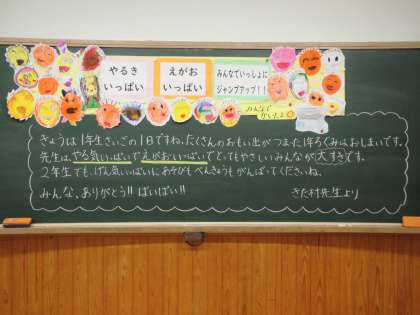 やるき
いっぱい
えがお
いっぱい
みんなでいっしょに
ジャンプアップ!!
みんなで
かいたよ
きょうは1年生さいごの1日ですね。たくさんのおもい出がつまった1年3くみはおしまいです。
先生は、やる気いっぱいでえがおいっぱいでとってもやさしいみんなが大すきです。
2年生でも、げん気いっぱいにあそびもべんきょうもがんばってくださいね。
みんな、ありがとう!! ばいばい!!
きた村先生より